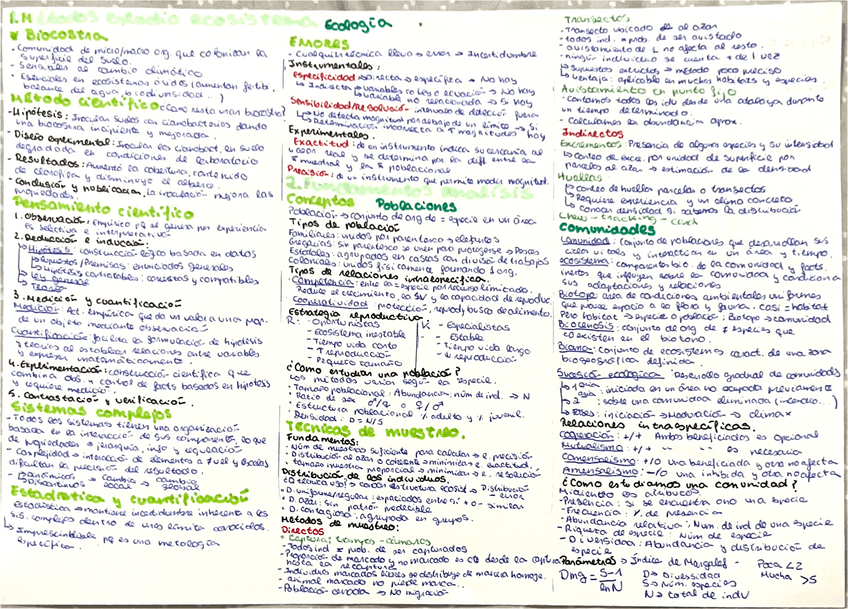 Ecología
1. Métodos estudio ecosistema
Biocostra
- Comunidad de micro/macro org que colonizan la
superficie del suelo.
- Sensibles al cambio climático
- Esenciales en ecosistemas áridos (aumentan fertili.
balance del agua, biodiversidad...)
Método científico: cómo resta unas biocostra?
- Hipótesis: Inoculan suelos con cianobacterias dando
una biocostra incipiente y mejorada.
- Diseño experimental: Inoculan los cianobact. en suelo
degradada en condiciones de laboratorio
- Resultados: Aumentó la cobertura, contenido
de clorofila y disminuye el albero.
- Conclusión y publicación. La inoculación mejora las
propiedades.
Pensamiento científico
1. Observación: empírico pq se genera por experiencia
es selectiva e interpretativa
2. Deducción e inducción:
Hipótesis: construcción lógica basada en datos
Supuestos/Premisas: enunciados generales
Hipótesis contrastables: concretas y computables
Ley general
Teoría
3. Medición y cuantificación
Medición: Act. empírica que da un valor a una prop.
de un objeto mediante observación
Cuantificación: facilita la formulación de hipótesis
y teorías al establecer relaciones entre variables
y expresar matemáticamente.
4. Experimentación: construcción científica que
combina dos y control de facts basados en hipótesis
y requiere medición
5. Contrastación y verificación.
Sistemas complejos
- Todos los sistemas tienen una organización
basada en la interacción de sus componentes, lo que
da propiedades → jerarquía, info y regulación
- Complejidad → interacción de elementos a ≠ nivel y escalas
dificultan la predicción del resultado.
Económicos → cambio → cambio
Ecosistemas local global
Estadística y cuantificación
Estadística → mantiene incertidumbre inherente a los
sis. complejos dentro de unos límites conocidos.
Imprescindible pq es una metología
específica.
Errores
- Cualquier técnica lleva → error → Incertidumbre
Instrumentales:
Especificidad → Directa → específica → No hay
Indirecta → Variables correl o ecuación → No hay
variable no relacionada → Sí hay
Sensibilidad/Resolución: intervalo de detección fuera
No detecta magnitud por debajo de un límite → Sí
Determinación incorrecta a ↑ magnitudes hay
Experimentales.
Exactitud: de un instrumento indica su cercanía al
valor real y se determina por la diff entre la
x̄ muestral y la x̄ poblacional
Precisión: de un instrumento que permite medir magnitud.
2. Fundamentos análisis
Conceptos Poblaciones
Población → conjunto de org de = especie en un área
Tipos de población
Familiares: unidos por parentesco → elefantes
Gregarias: sin parentesco se unen para protegerse → Peces
Estatales: agrupados en castas con división de trabajos
Coloniales: unidos físicamente formando 1 org.
Tipos de relaciones intraespecífica.
Competencia: entre la = especie por recurso limitado.
Reduce el crecimiento, la SV y la capacidad de reproduc
Cooperatividad: protección, reprod y busca de alimento.
Estrategia reproductiva
R: - Oportunistas
- Ecosistema inestable
- Tiempo vida corto
- ↑ reproducción
- Pequeño tamaño
K: - Especialistas
- Estable
- Tiempo vida largo
- ↓ reproducción
¿Cómo estudiar una población?
Los métodos varían según la especie.
- Tamaño poblacional: Abundancia, núm de ind. → N
- Ratio de sex ♂/♀ o ♀/♂
- Estructura poblacional % adulto y % juvenil.
- Densidad: D = N/S
Técnicas de muestreo.
Fundamentos:
- Núm de muestras suficiente para calcular → e. precisión
- Distribución al azar o coherente → minimiza e. exactitud.
- tamaño muestra proporcional → minimiza → e. resolución
Distribución de los individuos.
D. uniforme/regular: espaciados entre sí + o - similar
D. azar: sin patrón predecible
D. contagiosa: agrupado en grupos.
Métodos de muestreo:
Directos
* Captura: trampas - cámaras
- Todos ind = prob. de ser capturados
- Proporción de marcado y no marcado es cte desde la captura
hasta la recaptura
- Individuos marcados libres se distribuye de manera homoge.
- animal marcado no pierde marca.
- Población cerrada → No migración
Transectos
- Transecto ubicado al azar
- todos ind. = prob. de ser avistado
- avistamiento de 1 no afecta al resto.
- ningún individuo se cuenta + de 1 vez
Supuestos estrictos → método poco preciso
Ventaja: aplicable en muchos hábitats y especies.
Avistamiento en punto fijo
- contamos todos los idv desde una atalaya durante
un tiempo determinado.
- calculamos la abundancia aprox.
Indirectos
Excrementos: Presencia de alguna especies y su intensidad
conteo de excr. por unidad de superficie por
parcelas al azar → estimación de la densidad
Huellas
conteo de huellas parcelas o transectos
Requiere experiencia y un clima concreto
conocer densidad si sabemos la distribución
Comunidades
Comunidad: conjunto de poblaciones que desarrollan sus
ciclos vitales y interactúan en un área y tiempo.
ecosistema: componentes bio. de la comunidad y facts
inertes que influyen sobre la comunidad y condiciona
sus adaptaciones y relaciones
Biotopo: área de condiciones ambientales uniformes
que provee espacio a la flora y fauna. Casi = hábitat
Pero hábitat → especie o población; Biotopo → comunidad
Biocenosis: conjunto de org de ≠ especies que
coexisten en el biotono.
Bioma: conjunto de ecosistemas caract. de una zona
biogeográfica definida
Sucesión ecológica: Desarrollo gradual de comunidades
1ªria: iniciada en un área no ocupada previamente
2ªria: sobre una comunidad eliminada (incendio...)
Fases: iniciación → Maduración → climax
Relaciones intraespecíficas.
Cooperación: +/+ Ambos beneficiados es opcional
Mutualismo: +/+ " " es necesario
Comensalismo: +/0 Una beneficiada y otra no afecta
Amensalismo: -/0 una inhibida y otra no afecta
¿Cómo estudiamos una comunidad?
Midiendo los atributos
- Presencia: si se encuentra o no una especie
- Frecuencia: % de presencia
- Abundancia relativa: Núm. de ind de una especie
- Riqueza de especie: Núm de especie
- Diversidad: Abundancia y distribución de
especie
Parámetros → Índice de Margalef - Poca <2
Mucha >5
Dmg = S-1 / lnN
D → Diversidad
S → núm. especies
N → total de indv